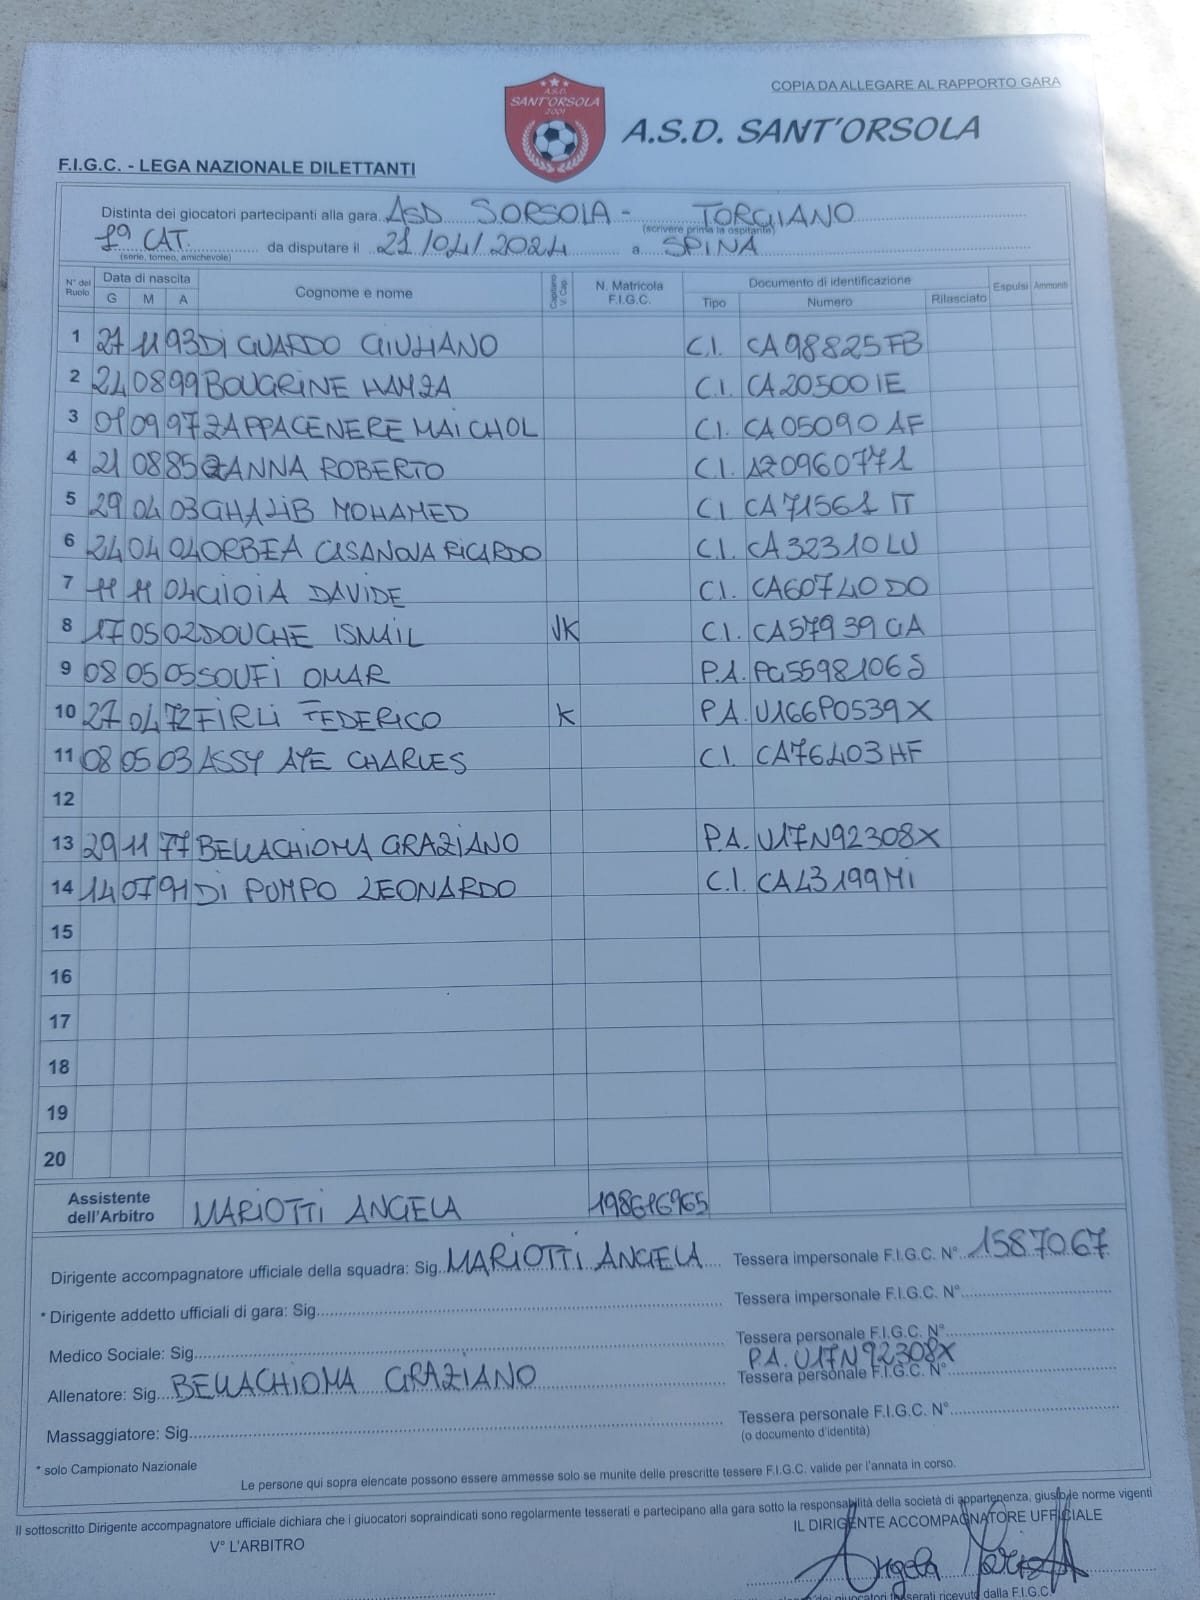 COPIA DA ALLEGARE AL RAPPORTO GARA
A.S.D.
SANT'ORSOLA
2001
A.S.D. SANT'ORSOLA
F.I.G.C. - LEGA NAZIONALE DILETTANTI
Distinta dei giocatori partecipanti alla gara ASD S.ORSOLA - TORGIANO
(scrivere prima la ospitante)
1ª CAT. da disputare il 21/04/2024 a SPINA
(serie, torneo, amichevole)
N° del Ruolo Data di nascita G M A Cognome e nome Capitano V. Cap. N. Matricola F.I.G.C. Documento di identificazione Tipo Numero Rilasciato Espulsi Ammoniti
1 27 11 93 DI GUARDO GIULIANO C.I. CA98825FB
2 24 08 99 BOUGRINE HAMZA C.I. CA20500IE
3 01 09 97 ZAPPACENERE MAICHOL C.I. CA05090AF
4 21 08 85 ZANNA ROBERTO C.I. AZ0960771
5 29 04 03 GHALIB MOHAMED C.I. CA71561IT
6 24 04 04 ORBEA CASANOVA RICARDO C.I. CA32310LU
7 11 11 04 GIOIA DAVIDE C.I. CA60740DO
8 17 05 02 DOUCHE ISMAIL VK C.I. CA57939GA
9 08 05 05 SOUFI OMAR P.A. PG5598106S
10 27 04 72 FIRLI FEDERICO K P.A. U166P0539X
11 08 05 03 ASSY AYE CHARLES C.I. CA76403HF
12
13 29 11 77 BELLACHIOMA GRAZIANO P.A. U17N92308X
14 14 07 91 DI POMPO LEONARDO C.I. CA43199MI
15
16
17
18
19
20
Assistente dell'Arbitro MARIOTTI ANGELA 198616965
Dirigente accompagnatore ufficiale della squadra: Sig. MARIOTTI ANGELA Tessera impersonale F.I.G.C. N° 1587067
* Dirigente addetto ufficiali di gara: Sig. Tessera impersonale F.I.G.C. N°
Medico Sociale: Sig. Tessera personale F.I.G.C. N°
P.A. U17N92308X
Allenatore: Sig. BELLACHIOMA GRAZIANO Tessera personale F.I.G.C. N°
Massaggiatore: Sig. Tessera personale F.I.G.C. N°
(o documento d'identità)
* solo Campionato Nazionale
Le persone qui sopra elencate possono essere ammesse solo se munite delle prescritte tessere F.I.G.C. valide per l'annata in corso.
Il sottoscritto Dirigente accompagnatore ufficiale dichiara che i giuocatori sopraindicati sono regolarmente tesserati e partecipano alla gara sotto la responsabilità della società di appartenenza, giusto le norme vigenti
V° L'ARBITRO IL DIRIGENTE ACCOMPAGNATORE UFFICIALE
Angela Mariotti
dei giuocatori tesserati ricevuto dalla F.I.G.C